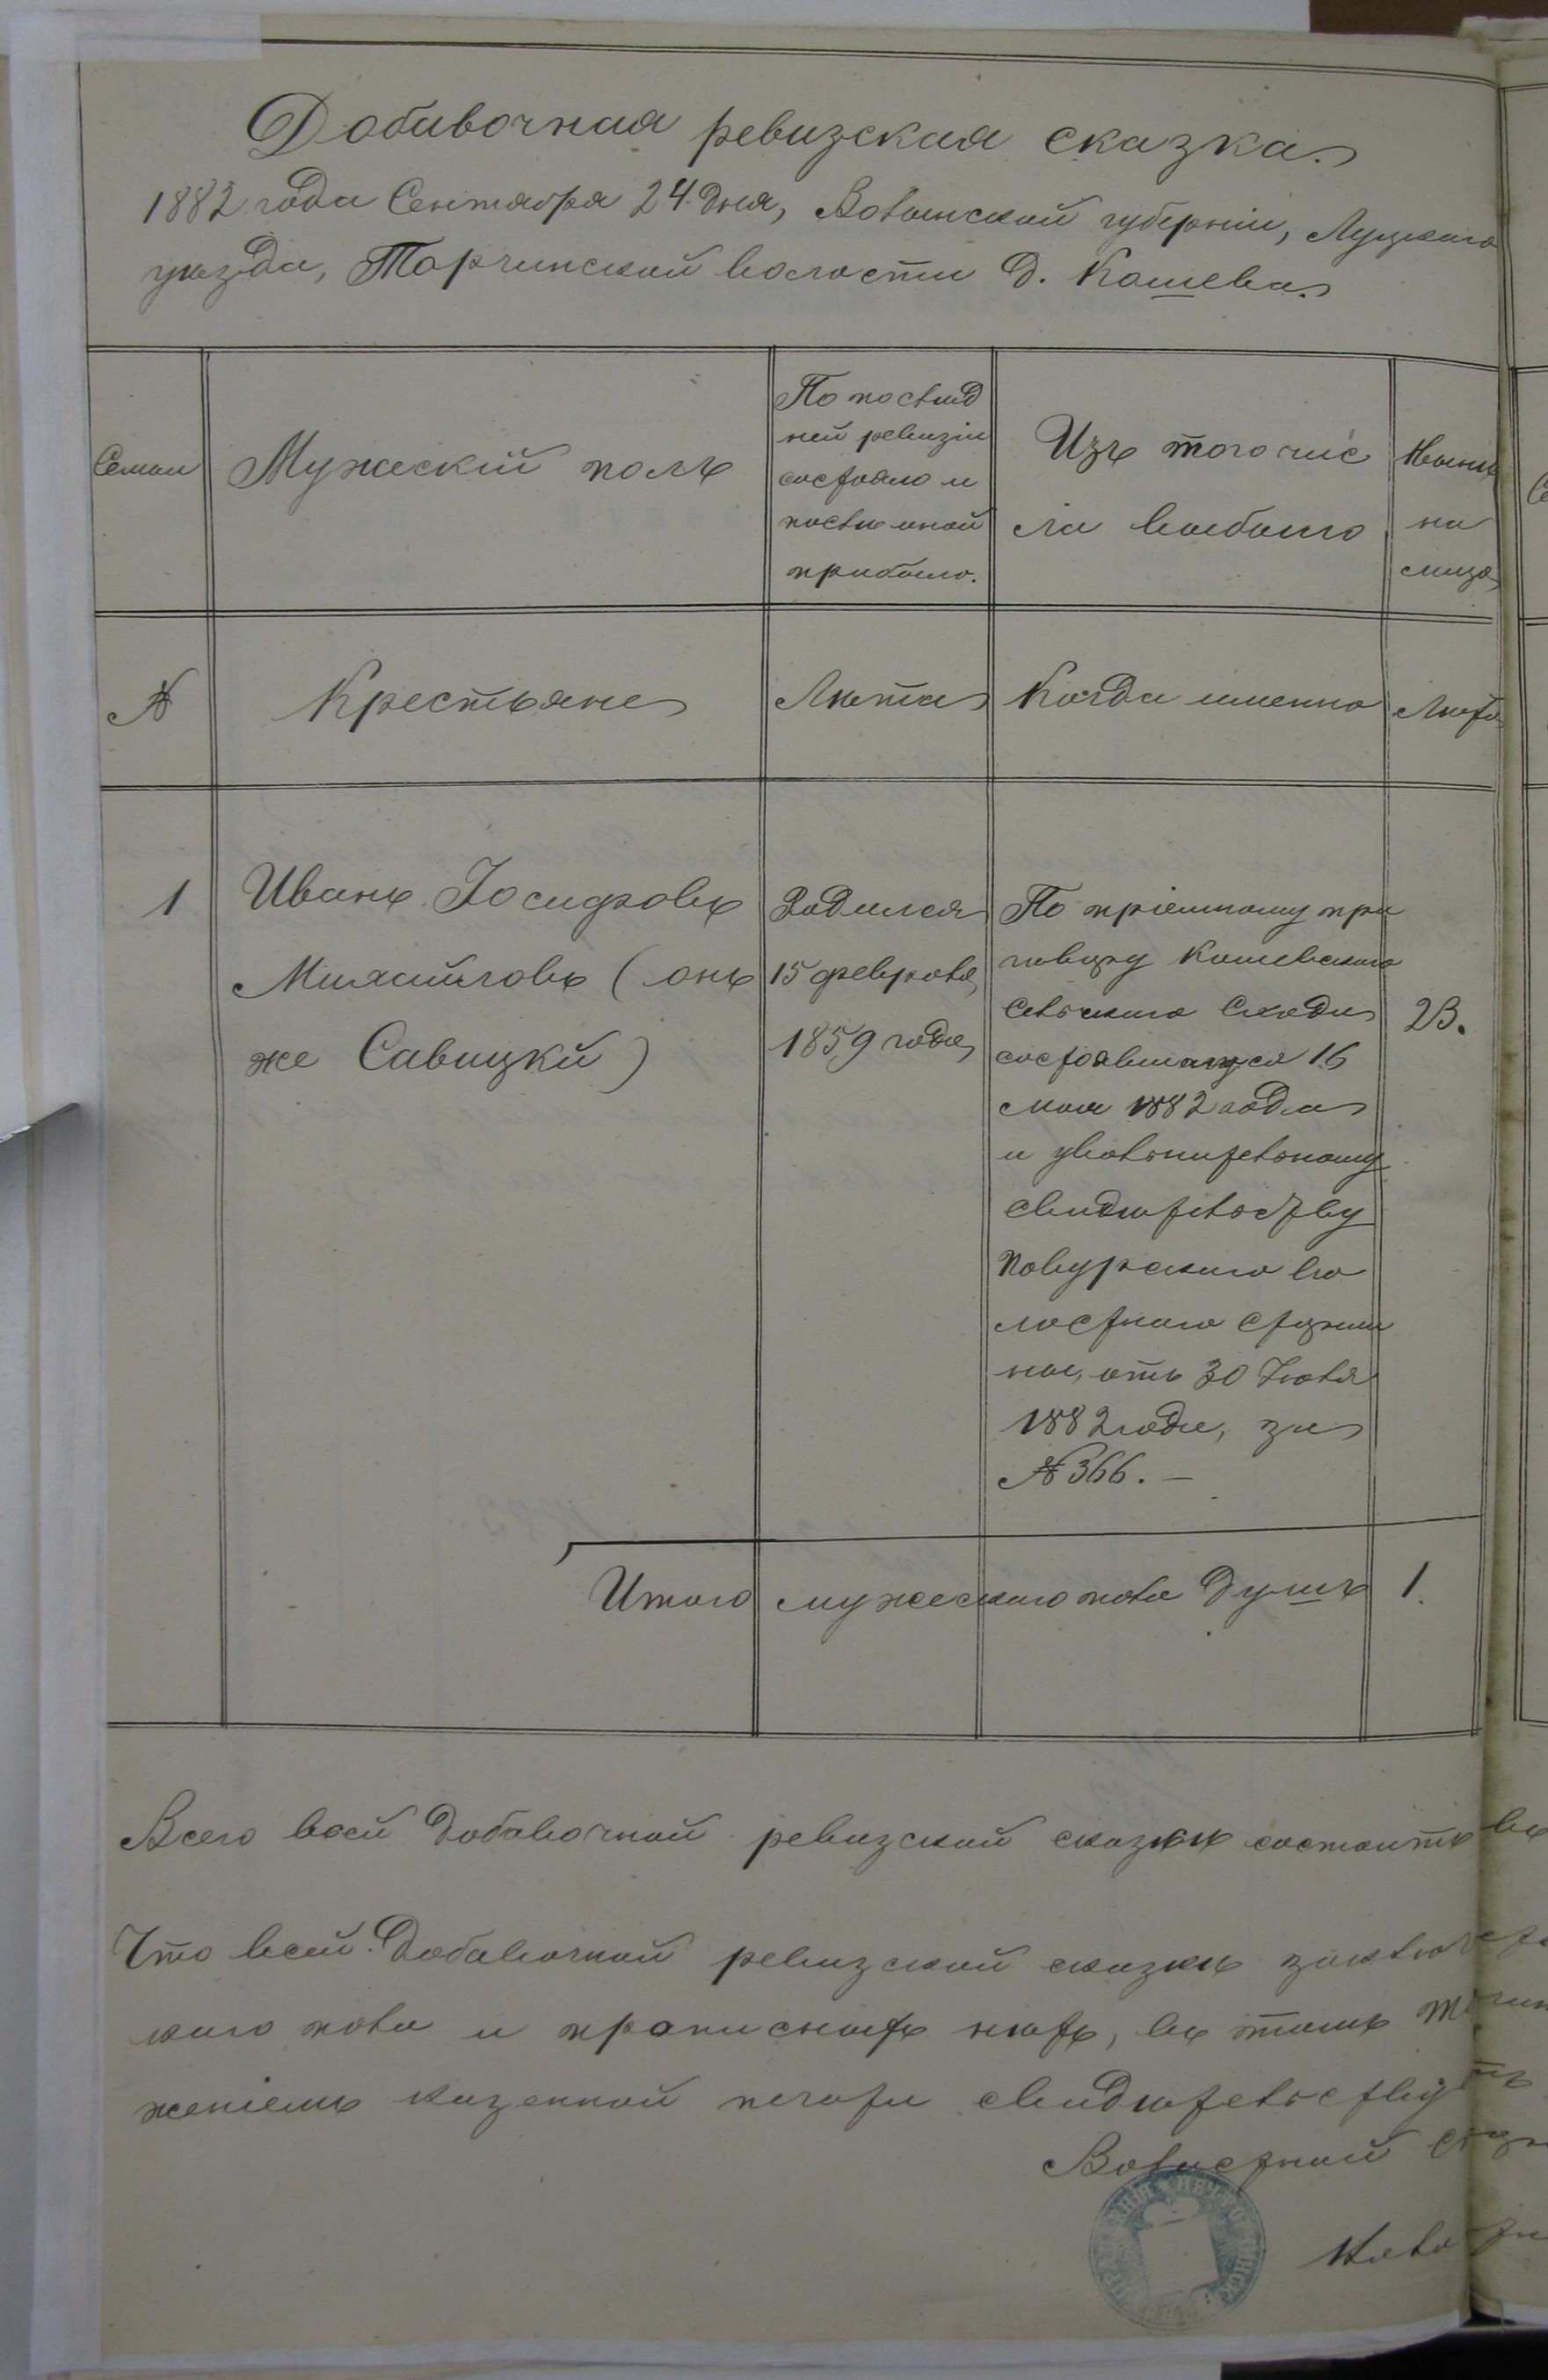 Добавочная ревизская сказка.
1882 года Сентября 24 дня, Волынской губерніи, Луцкаго
уѣзда, Торчинской волости д. Кошева.
Семьи
Мужескій полъ
По послѣд
ней ревизіи
состояло и
послѣ оной
прибыло.
Изъ того чис
ла выбыло
Нынѣ
на
лицо
№
Крестьяне
Лѣта
Когда именно
Лѣта
1
Иванъ Іосифовъ
(онъ
же Савицкій)
Родился
15 февраля
1859 года
По пріемному при
говору Кошевскаго
Сельскаго Схода
состоявшагося 16
мая 1882 года
и увольнительному
свидѣтельству
Повурскаго во
лостнаго старши
ны, отъ 30 Іюля
1882 года, за
№ 366. —
23.
Итого мужескаго пола душъ 1.
Всего всей добавочной ревизской сказкѣ состоитъ въ
Что всей добавочной ревизской сказкѣ
каго пола и прописныхъ нѣтъ, въ томъ
женіемъ казенной печати
Волостной